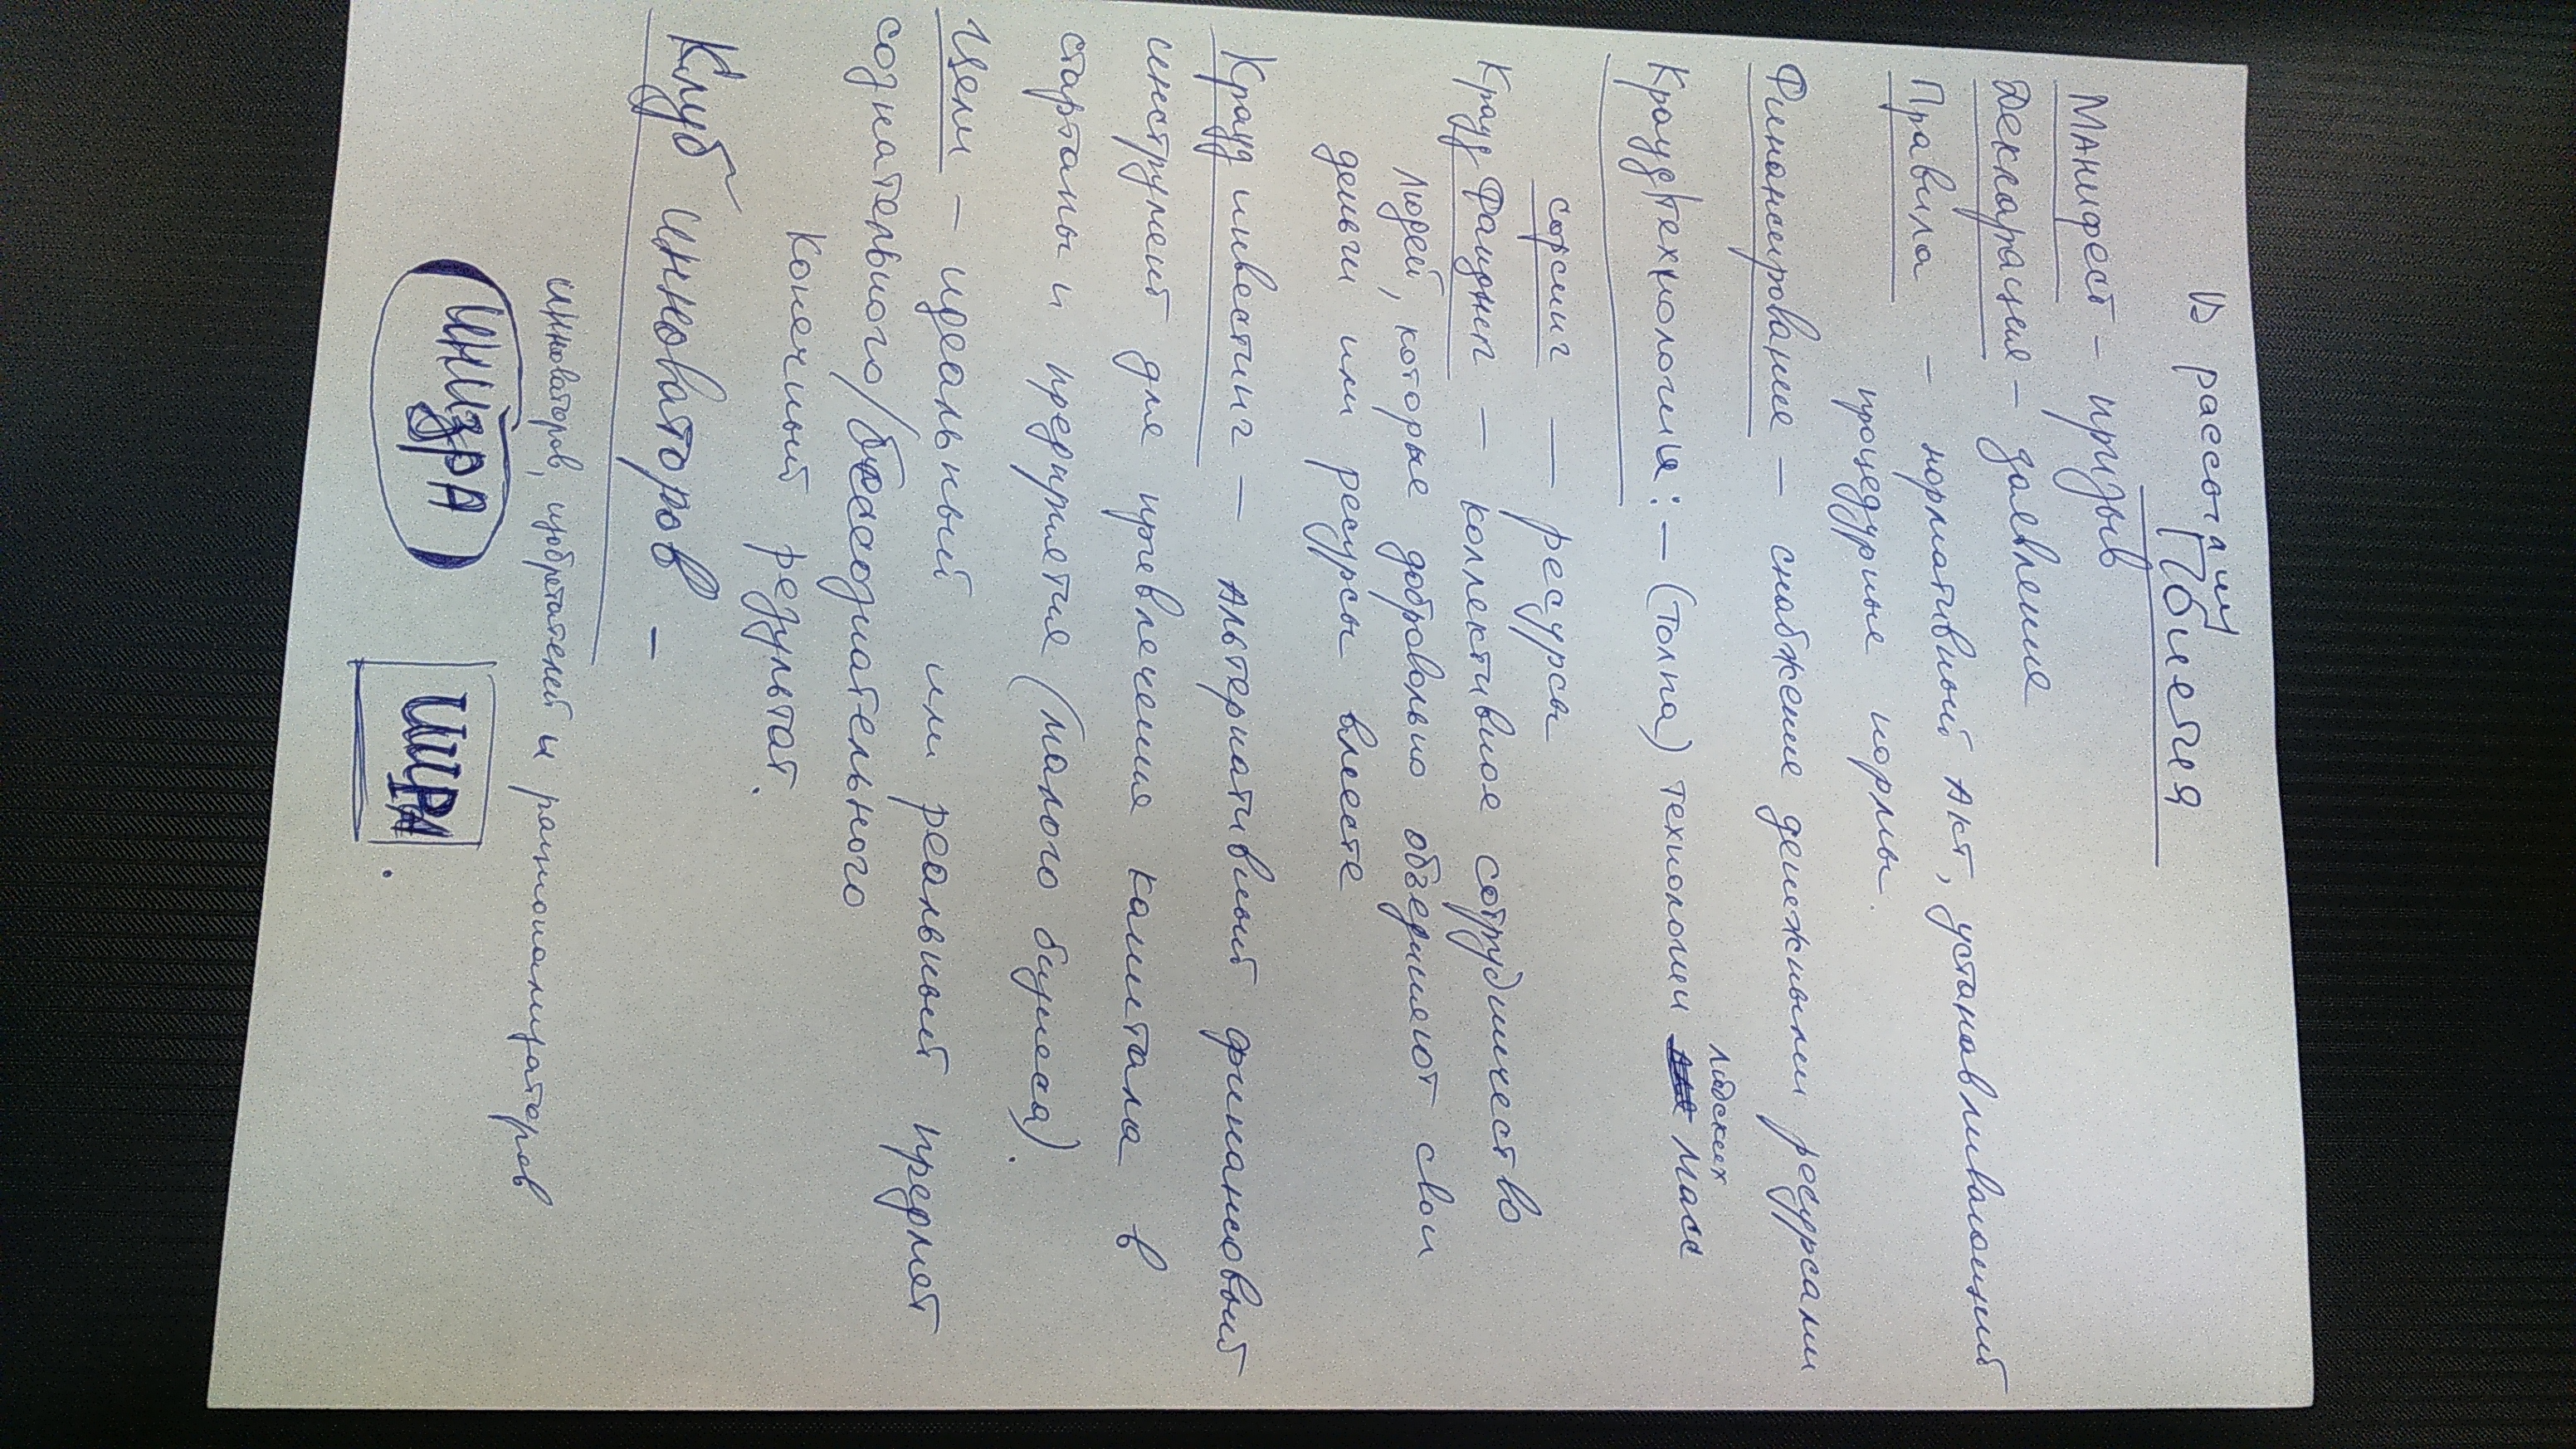 В рассылку
Понятия
Манифест – призыв
Декларация – заявление
Правила – нормативный Акт, устанавливающий
процедурные нормы.
Финансирование – снабжение денежными ресурсами
людских
Крауд/технология: – (толпа) технологии масс
сорсинг – ресурсы
Крауд Фандинг – коллективное сотрудничество
людей, которые добровольно объединяют свои
деньги или ресурсы вместе
Крауд инвестинг – Альтернативный финансовый
инструмент для привлечения капитала в
стартапы и предприятие (малого бизнеса).
Цели – идеальный или реальный предмет
сознательного/бессознательного
Конечный результат.
Клуб инноваторов –
инноваторов, изобретателей и рационализаторов